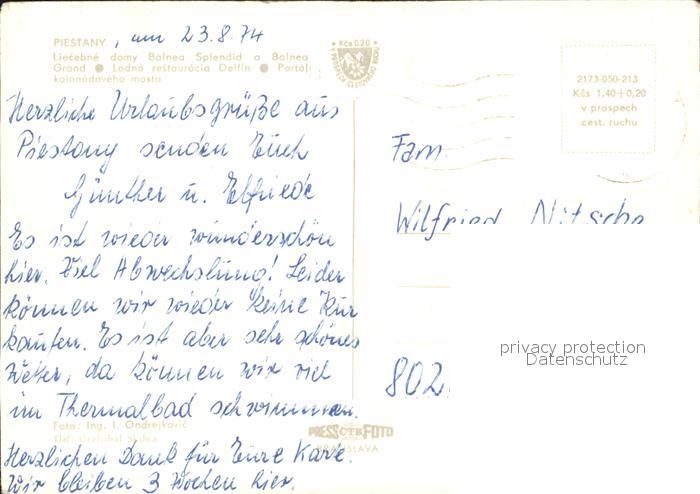 PIEŠŤANY , am 23.8.74
Liečebné domy Balnea Splendid a Balnea
Grand ● Lodná reštaurácia Delfín ● Portál
kolonádového mosta
Kčs 0,20
2173-050-213
Kčs 1,40+0,20
v prospech
cest. ruchu
Herzliche Urlaubsgrüße aus
Piestany senden Euch
Günther u. Elfriede
Es ist wieder wunderschön
hier. Viel Abwechslung! Leider
können wir wieder keine Kur
kaufen. Es ist aber sehr schönes
Wetter, da können wir viel
im Thermalbad schwimmen.
Herzlichen Dank für Eure Karte.
Wir bleiben 3 Wochen hier.
Fam.
Wilfried Nitsche
802
privacy protection
Datenschutz
Foto: Ing. I. Ondrejkovič
PRESSČTKFOTO
BRATISLAVA